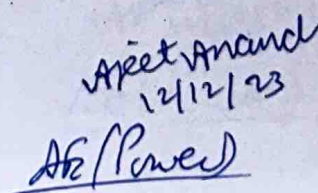 Ajeet Anand
12/12/23
AE (Power)